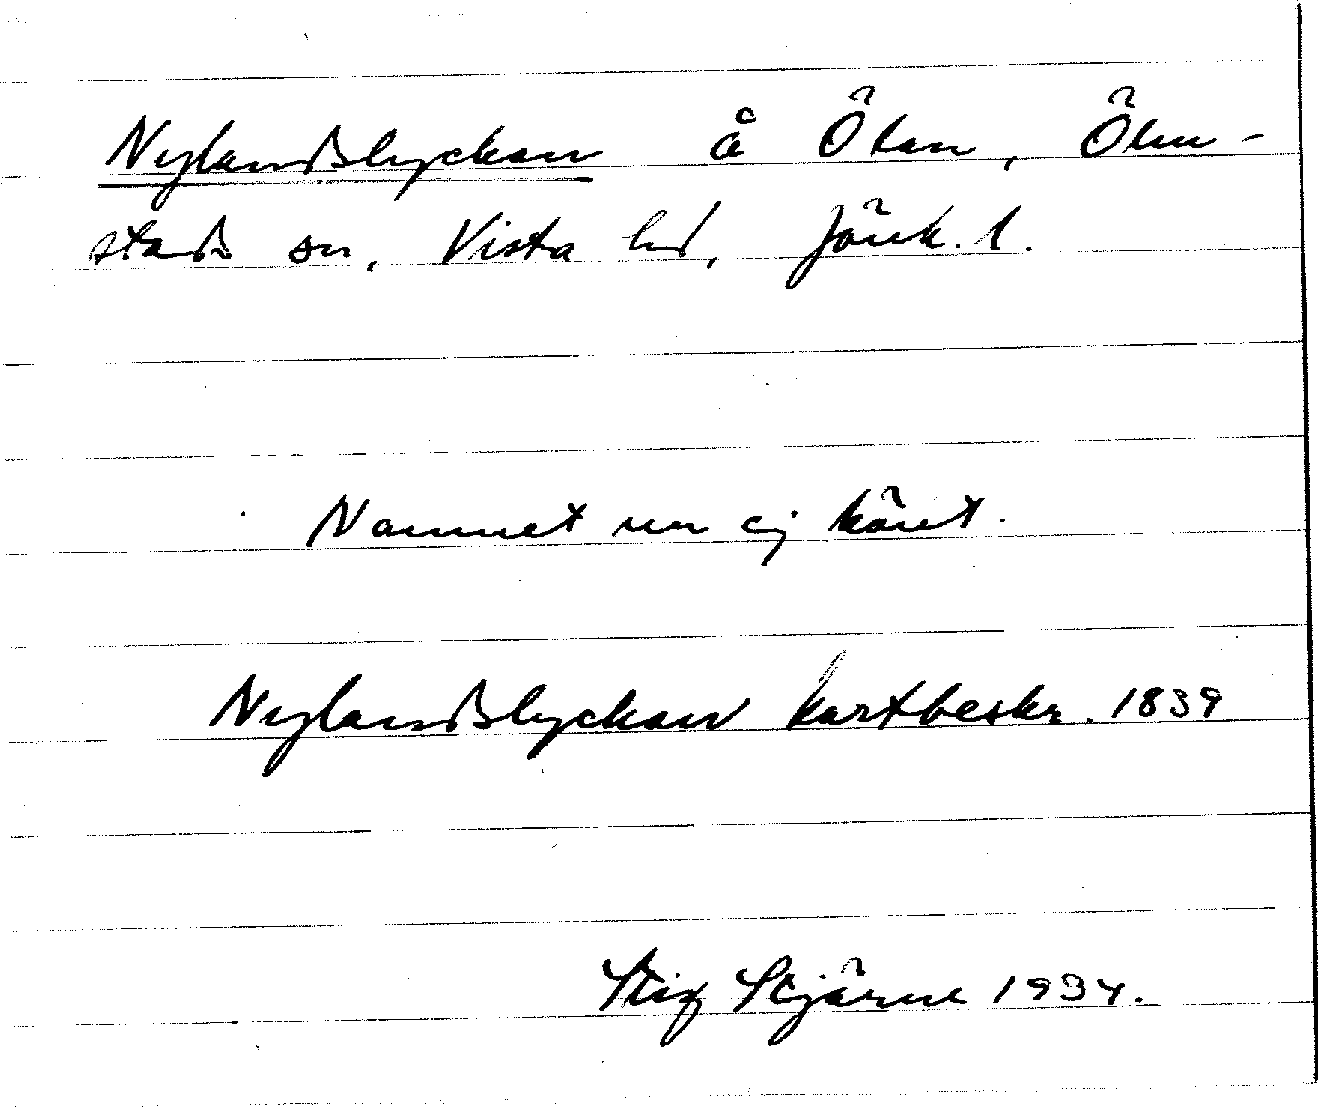 Nylandslyckan å Ölan, Ölm-
stads sn, Vista hd, Jönk. l.
Namnet nu ej känt.
Nylandslyckan kartbeskr. 1839
Stig Stjärne 1934.